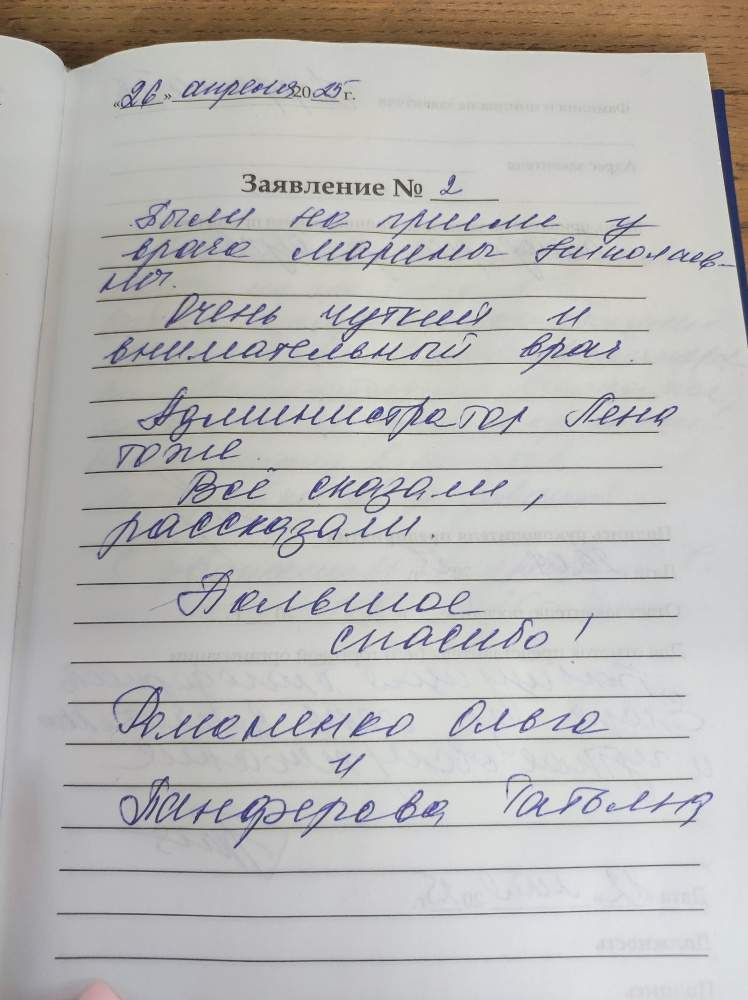 «26» апреля 2025 г.
Заявление № 2
Были на приеме у
врача Марины Николаев-
ны.
Очень чуткий и
внимательный врач.
Администратор Лена
тоже.
Всё сказали,
рассказали.
Большое
спасибо!
Романенко Ольга
и
Панферова Татьяна